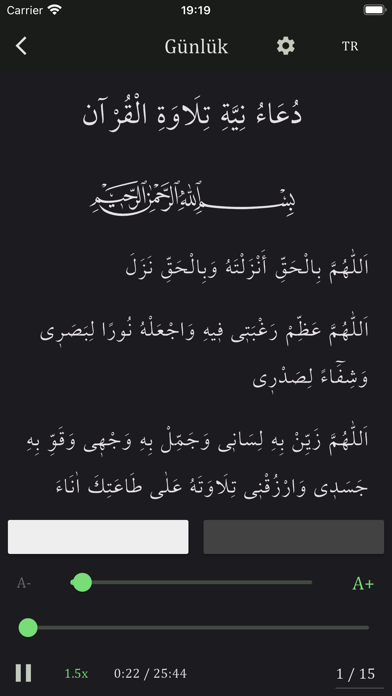 Carrier 19:19
Günlük TR
دُعَاءُ نِيَّةِ تِلَاوَةِ الْقُرْآنِ
بِسْمِ اللهِ الرَّحْمٰنِ الرَّحِيْمِ
اَللّٰهُمَّ بِالْحَقِّ أَنْزَلْتَهُ وَبِالْحَقِّ نَزَلَ
اَللّٰهُمَّ عَظِّمْ رَغْبَتِى فِيهِ وَاجْعَلْهُ نُورًا لِبَصَرِى
وَشِفَٓاءً لِصَدْرِى
اَللّٰهُمَّ زَيِّنْ بِهِ لِسَانِى وَجَمِّلْ بِهِ وَجْهِى وَقَوِّ بِهِ
جَسَدِى وَارْزُقْنِى تِلَاوَتَهُ عَلٰى طَاعَتِكَ اٰنَاءَ
A- A+
1.5x 0:22 / 25:44 1 / 15